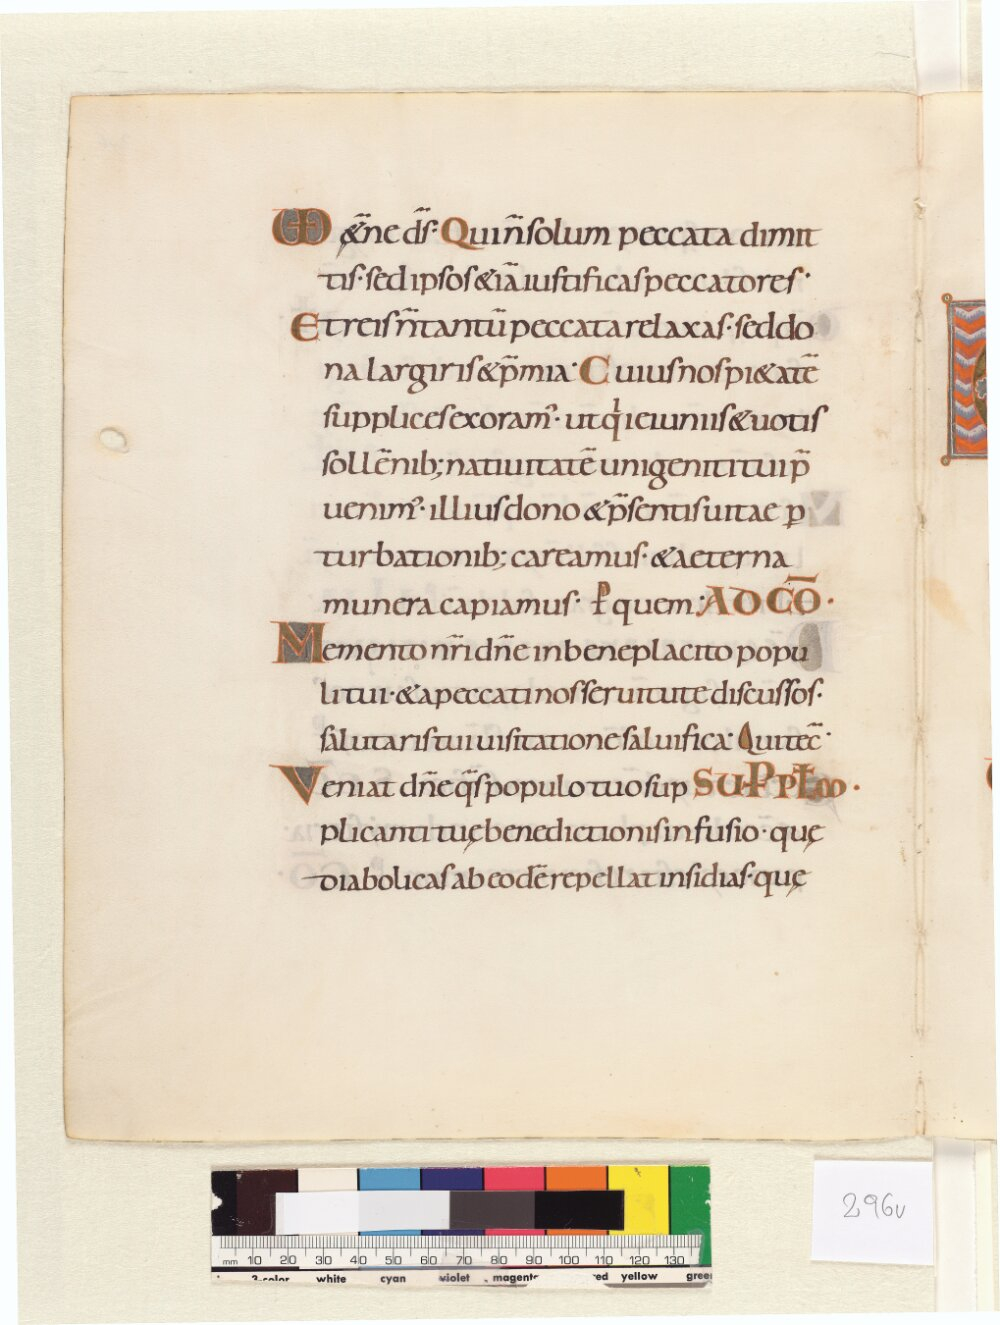 UD &̄ne d̄s· Qui n̄ solum peccata dimit
tis· sed ipsos & iā iustificas peccatores·
Et reis n̄ tantū peccata relaxas· sed do
na largiris & p̄mia· Cuius nos pi&atē
supplices exoram᾽· ut qͥ ieiuniis & uotis
sollēnib; natiuitatē unigeniti tui p̄
uenim᾽· illius dono & p̄sentis uitae ꝑ
turbationib; careamus· & aeterna
munera capiamus· ꝑ quem· AD C̄O·
Memento nr̄i dn̄e in beneplacito popu
li tui· & a peccati nos seruitute discussos·
salutaris tui uisitatione saluifica· Qui tec̄·
Veniat dn̄e q̄s populo tuo sup SUP PŁM·
plicanti tuę benedictionis infusio· quę
diabolicas ab eodē repellat insidias· quę
296v
mm 10 20 30 40 50 60 70 80 90 100 110 120 130
3-color white cyan violet magenta red yellow green